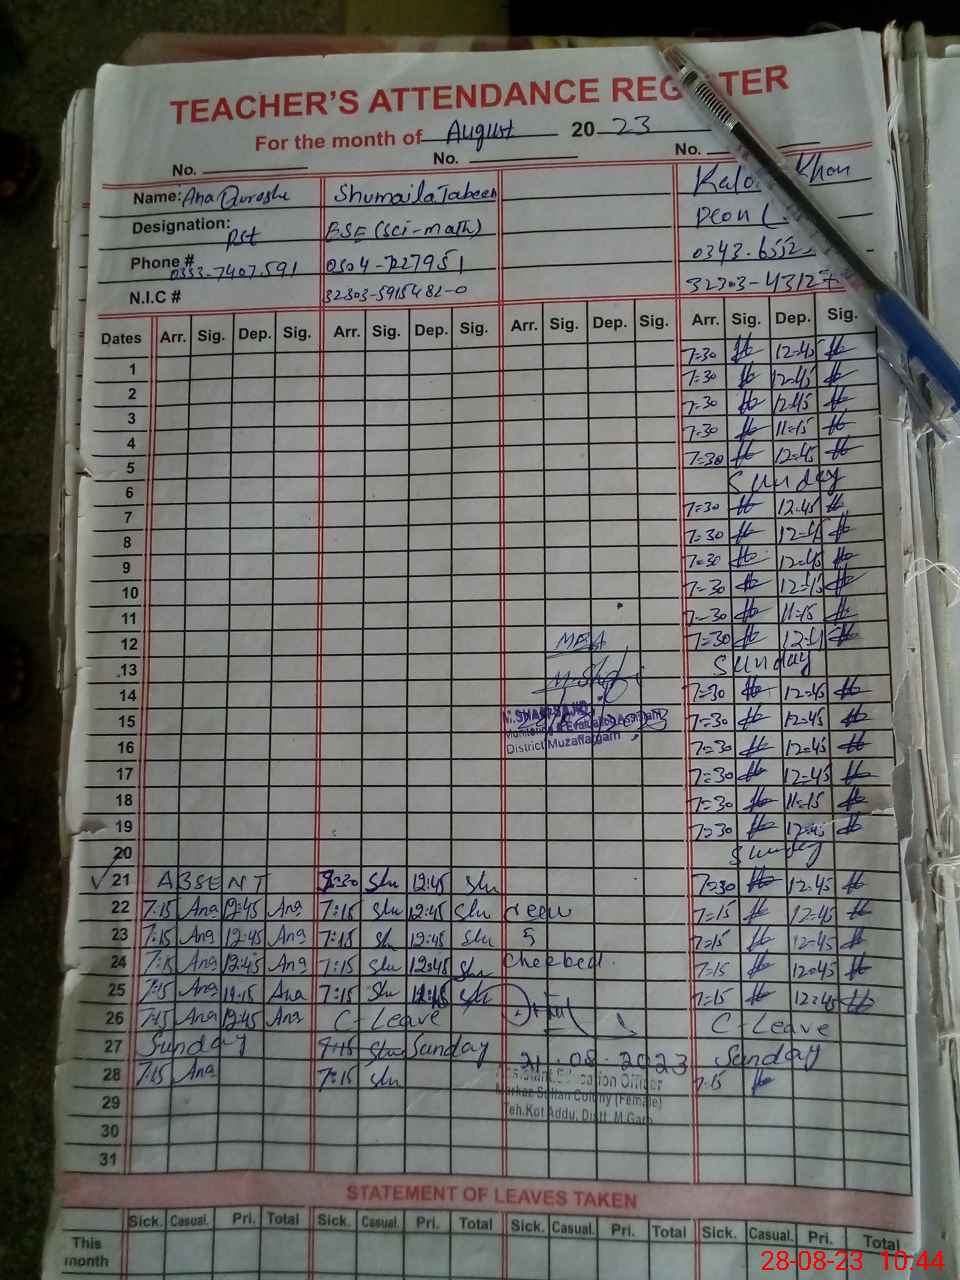 TEACHER'S ATTENDANCE REGISTER
For the month of August 2023
No. No. No.
Name: Ana Shumaila Khan
Designation: Pst ESE (Sci-math) Peon
Phone # 0333-7407591 0304-7227951 0343-6552
N.I.C # 32303-5915482-0 32303-43127
Dates Arr. Sig. Dep. Sig. Arr. Sig. Dep. Sig. Arr. Sig. Dep. Sig. Arr. Sig. Dep. Sig.
1 7=30 12=45
2 7=30 12=45
3 7=30 12=45
4 7=30 11=15
5 7=30 12=45
6 Sunday
7 7=30 12=45
8 7=30
9 7=30 12=45
10 7=30
11 7=30 11=15
12 MEA 7=30
13 Sunday
14 7=30 12=45
15 7=30 12=45
Monitoring & Evaluation Assistant
District Muzaffargarh
16 7=30 12=45
17 7=30 12=45
18 7=30 11=15
19 7=30 12=45
20 Sunday
21 ABSENT 7:30 Shu 12:45 Shu 7=30 12=45
22 7:15 Ana 12:45 Ana 7:15 Shu 12:45 Shu 7=15 12=45
23 7:15 Ana 12:45 Ana 7:15 Sh 12:45 Shu 7=15 12=45
24 7:15 Ana 12:45 Ana 7:15 Shu 12:45 Shu Checked. 7=15 12=45
25 7:15 Ana 12:15 Ana 7:15 Shu Shu 7=15 12=45
26 7:15 Ana 12:45 Ana C-Leave C-Leave
27 Sunday Sunday 21.08.2023 Sunday
28 7:15 Ana 7:15 Shu 7:15
Assistant Education Officer
Markaz Sultan Colony (Female)
Teh.Kot Addu, Distt. M.Garh
29
30
31
STATEMENT OF LEAVES TAKEN
Sick. Casual. Pri. Total Sick. Casual. Pri. Total Sick. Casual. Pri. Total Sick. Casual. Pri. Total
This
month
28-08-23 10:44